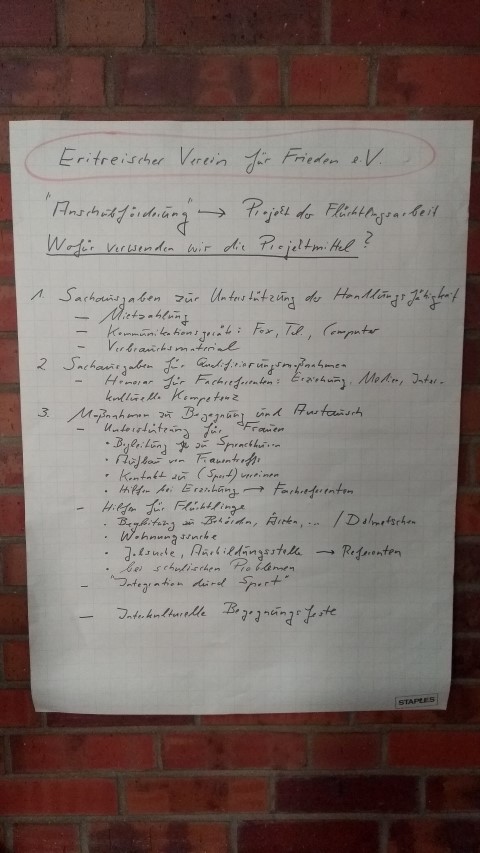 Eritreischer Verein für Frieden e.V.
"Anschubförderung" → Projekt der Flüchtlingsarbeit
Wofür verwenden wir die Projektmittel?
1. Sachausgaben zur Unterstützung der Handlungsfähigkeit
— Mietzahlung
— Kommunikationsgerät: Fax, Tel., Computer
— Verbrauchsmaterial
2. Sachausgaben für Qualifizierungsmaßnahmen
– Honorar für Fachreferenten: Erziehung, Medien, Inter-
kulturelle Kompetenz
3. Maßnahmen zu Begegnung und Austausch
– Unterstützung für Frauen
• Begleitung zu Sprachkursen
• Aufbau von Frauentreffs
• Kontakt zu (Sport)vereinen
• Hilfen bei Erziehung → Fachreferenten
– Hilfen für Flüchtlinge
• Begleitung zu Behörden, Ärzten, ... / Dolmetschen
• Wohnungssuche
• Jobsuche, Ausbildungsstelle → Referenten
• bei schulischen Problemen
– "Integration durch Sport"
— Interkulturelle Begegnungsfeste
STAPLES